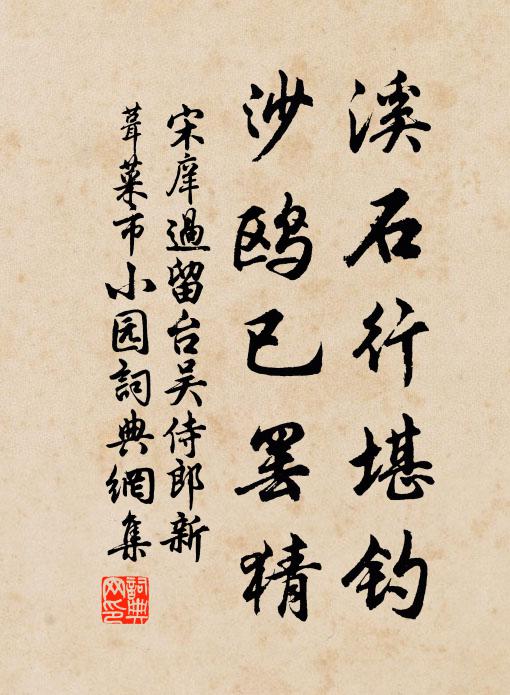 溪石行堪钓
沙鸥已罢猜
宋庠過留台吴侍郎新
葺菜市小园詞典網集
詞典网印